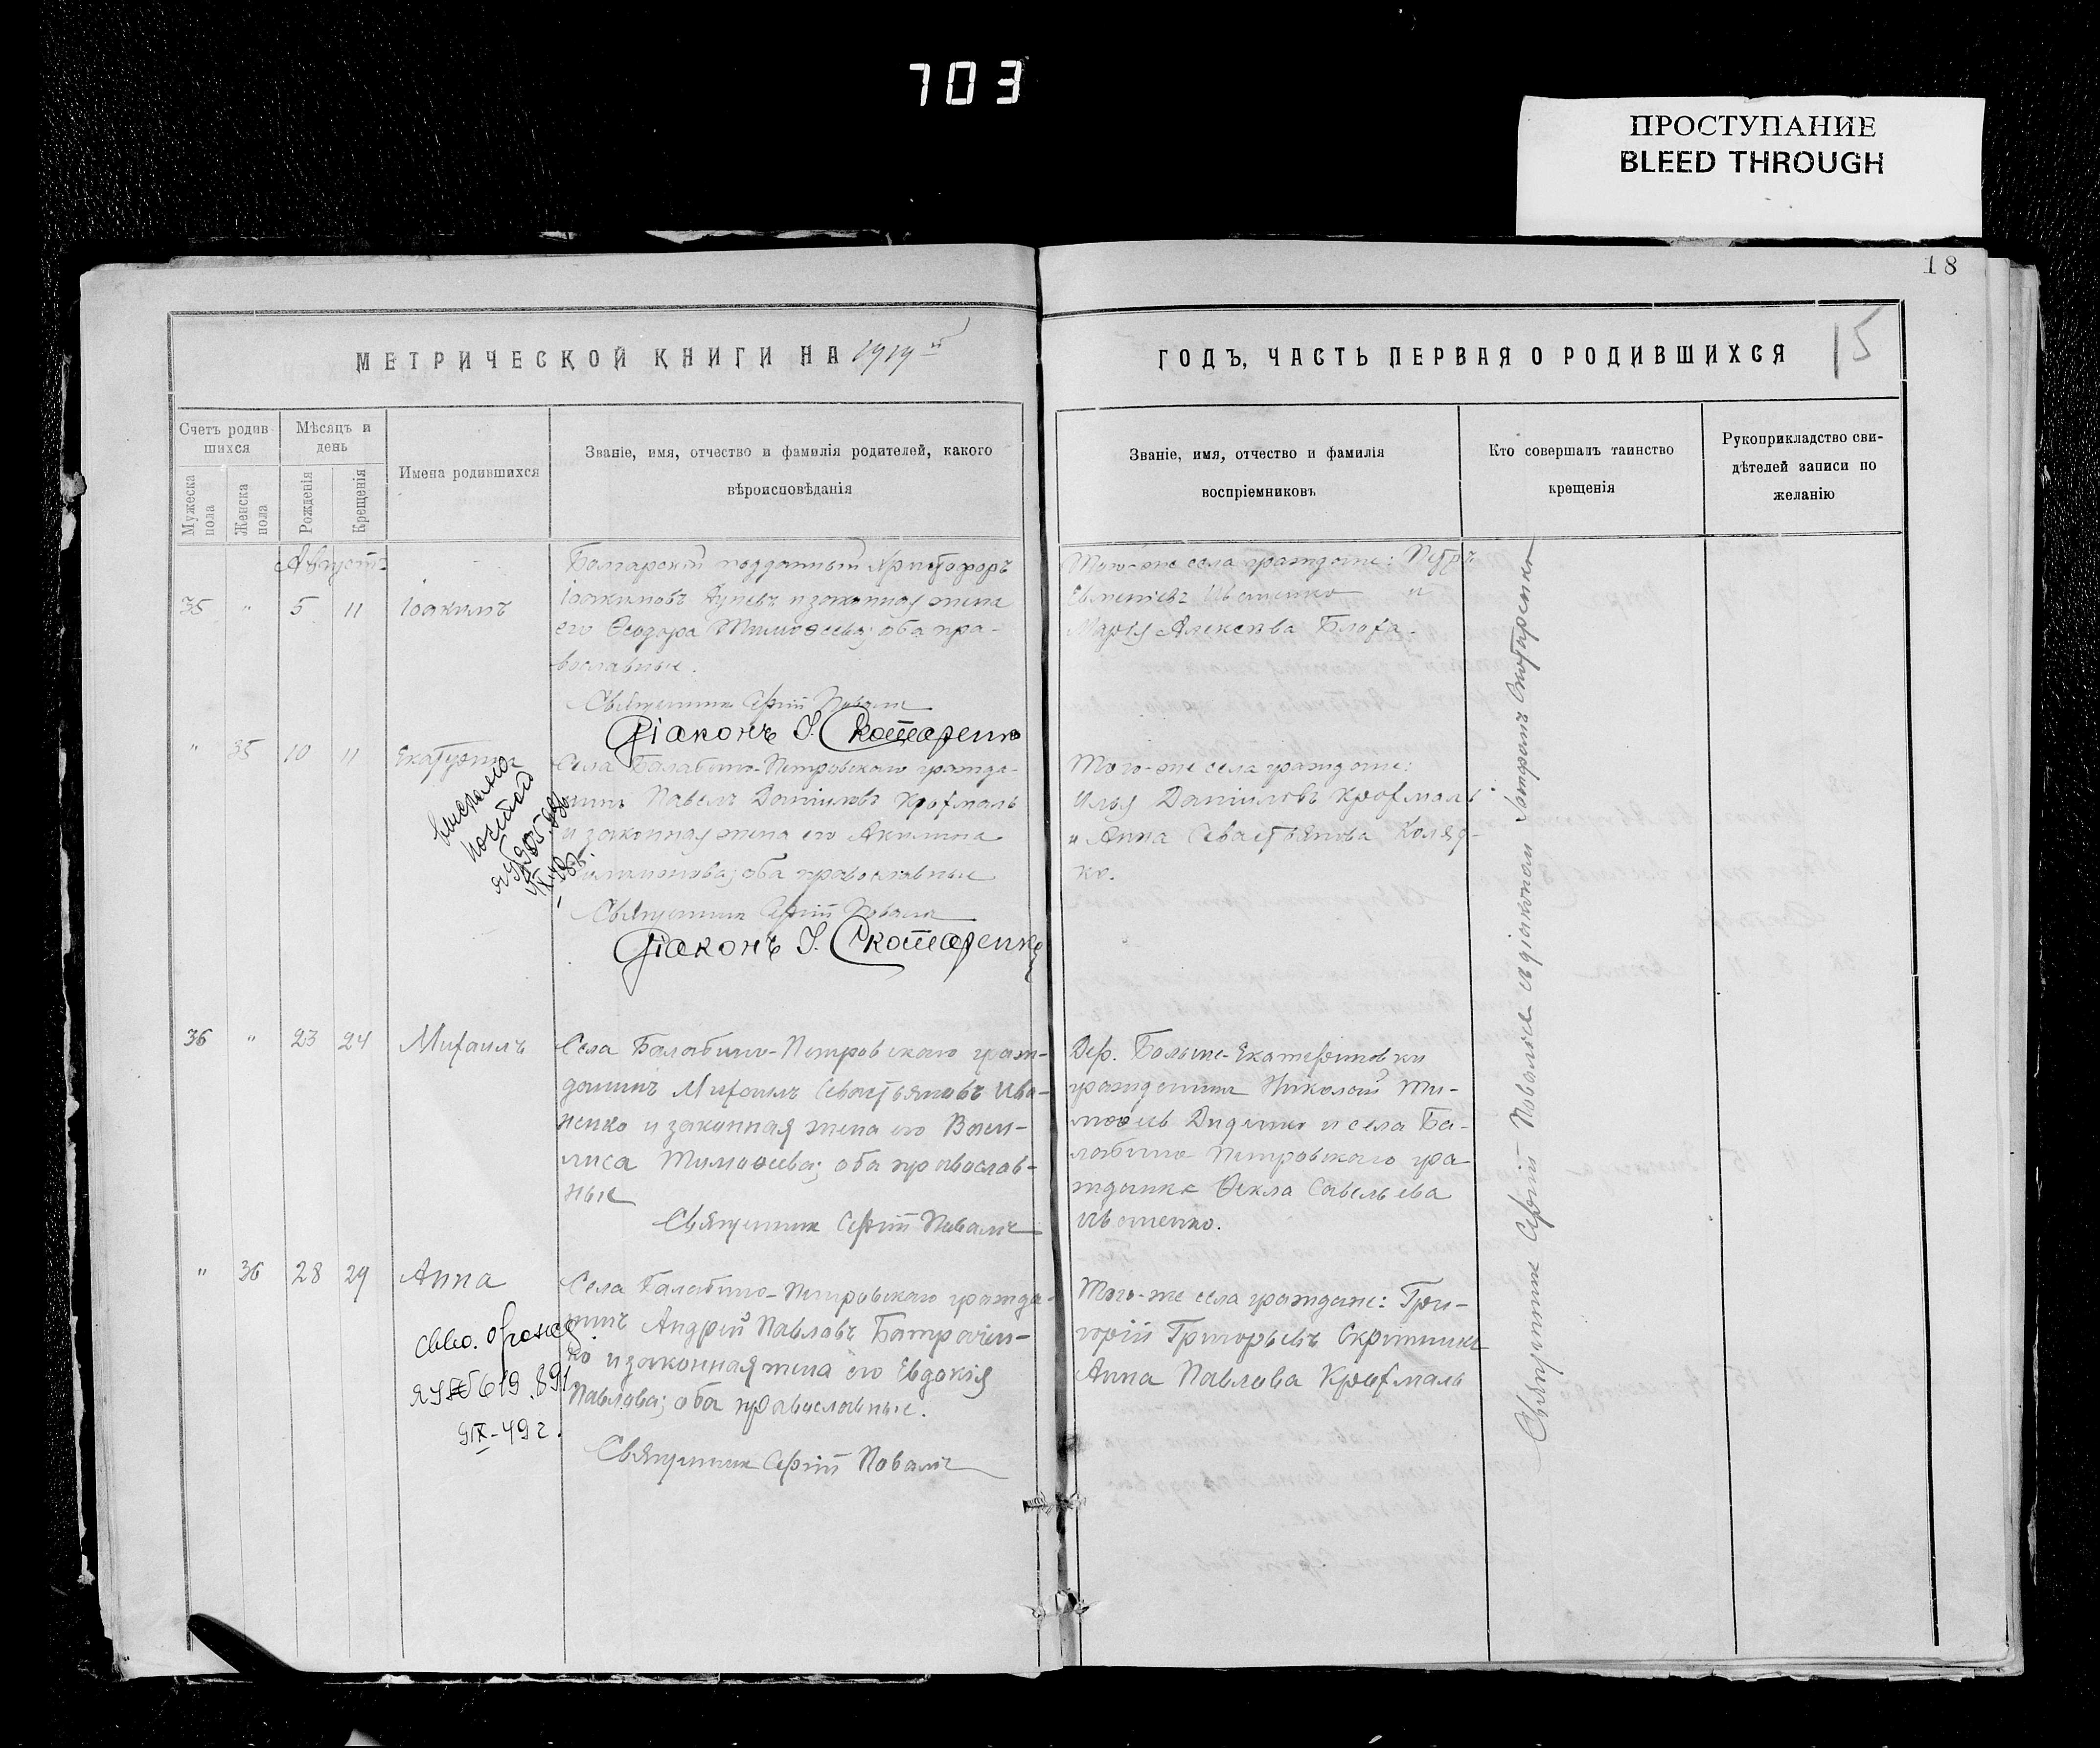 703
ПРОСТУПАНИЕ
BLEED THROUGH
18
15
МЕТРИЧЕСКОЙ КНИГИ НА 1919й
ГОДЪ, ЧАСТЬ ПЕРВАЯ О РОДИВШИХСЯ
Счетъ родившихся
Мужеска пола
Женска пола
Мѣсяцъ и день
Рожденія
Крещенія
Имена родившихся
Званіе, имя, отчество и фамилія родителей, какого
вѣроисповѣданія
Званіе, имя, отчество и фамилія
воспріемниковъ
Кто совершалъ таинство
крещенія
Рукоприкладство сви-
дѣтелей записи по
желанію
Августъ
35 " 5 11 Іоакимъ
Болгарскій подданный Христофоръ
Іоакимовъ и законная жена
его Ѳеодора Тимоѳеева; оба пра-
вославные.
Священникъ Сергій Поваля
Діаконъ І. Скотаренко
Того-же села граждане: Петръ
Евменіевъ Ивоненко и
Марія Алексѣева
" 35 10 11 Екатерина
Села Балабино-Петровскаго гражда-
нинъ Павелъ Даніиловъ Крохмаль
и законная жена его Акилина
оба православные
Священникъ Сергій Поваля
Діаконъ І. Скотаренко
Того-же села граждане:
Илья Даніиловъ Крохмаль
и Анна Севастьянова Коляд-
ко.
выслано
почтой
36 " 23 24 Михаилъ
Села Балабино-Петровскаго граж-
данинъ Михаилъ Севастьяновъ Ива-
ненко и законная жена его Васи-
лиса Тимоѳеева; оба православ-
ные
Священникъ Сергій Поваля
Дер. Больше-Екатериновки
гражданинъ Николай Ти-
моѳеевъ Диденко и села Ба-
лабино-Петровскаго гра-
жданка Ѳекла Савельева
Ивоненко.
" 36 28 29 Анна
Села Балабино-Петровскаго гражда-
нинъ Андрей Павловъ Батрачен-
ко и законная жена его Евдокія
Павлова; оба православные.
Священникъ Сергій Поваля
Того-же села граждане: Гри-
горій Григорьевъ Скрипникъ
Анна Павлова Крохмаль
свид. о рожд
619.891
9 IX-49 г.
Священникъ Сергій Поваля съ діакономъ Скотаренко